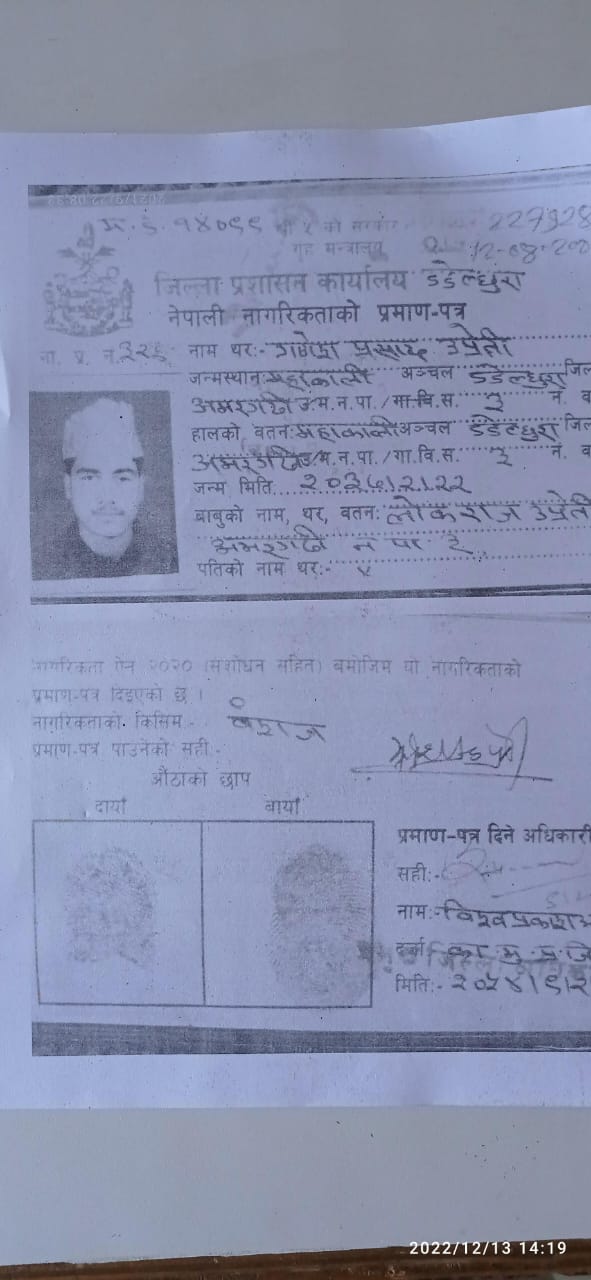 १४०९९
गृह मन्त्रालय
जिल्ला प्रशासन कार्यालय डडेल्धुरा
नेपाली नागरिकताको प्रमाण-पत्र
ना. प्र. नं. ३२६ नाम थर:- गणेश प्रसाद उप्रेती
जन्मस्थान: महाकाली अञ्चल डडेल्धुरा जिल
अमरगढी उ.म.न.पा./गा.वि.स. ३ नं. व
हालको वतन: महाकाली अञ्चल डडेल्धुरा जिल
अमरगढी उ.म.न.पा./गा.वि.स. ३ नं. व
जन्म मिति
बाबुको नाम, थर, वतन: लोकराज उप्रेती
अमरगढी न पा ३
पतिको नाम थर:- x
नागरिकता ऐन २०२० (संशोधन सहित) बमोजिम यो नागरिकताको
प्रमाण-पत्र दिइएको छ ।
नागरिकताको किसिम:- वंशज
प्रमाण-पत्र पाउनेको सही:-
औंठाको छाप
दायाँ बायाँ
प्रमाण-पत्र दिने अधिकारी
सही:-
नाम:- विश्वप्रकाश
दर्जा का.मु.प्र.जि
मिति:- २०५४।९।२
2022/12/13 14:19